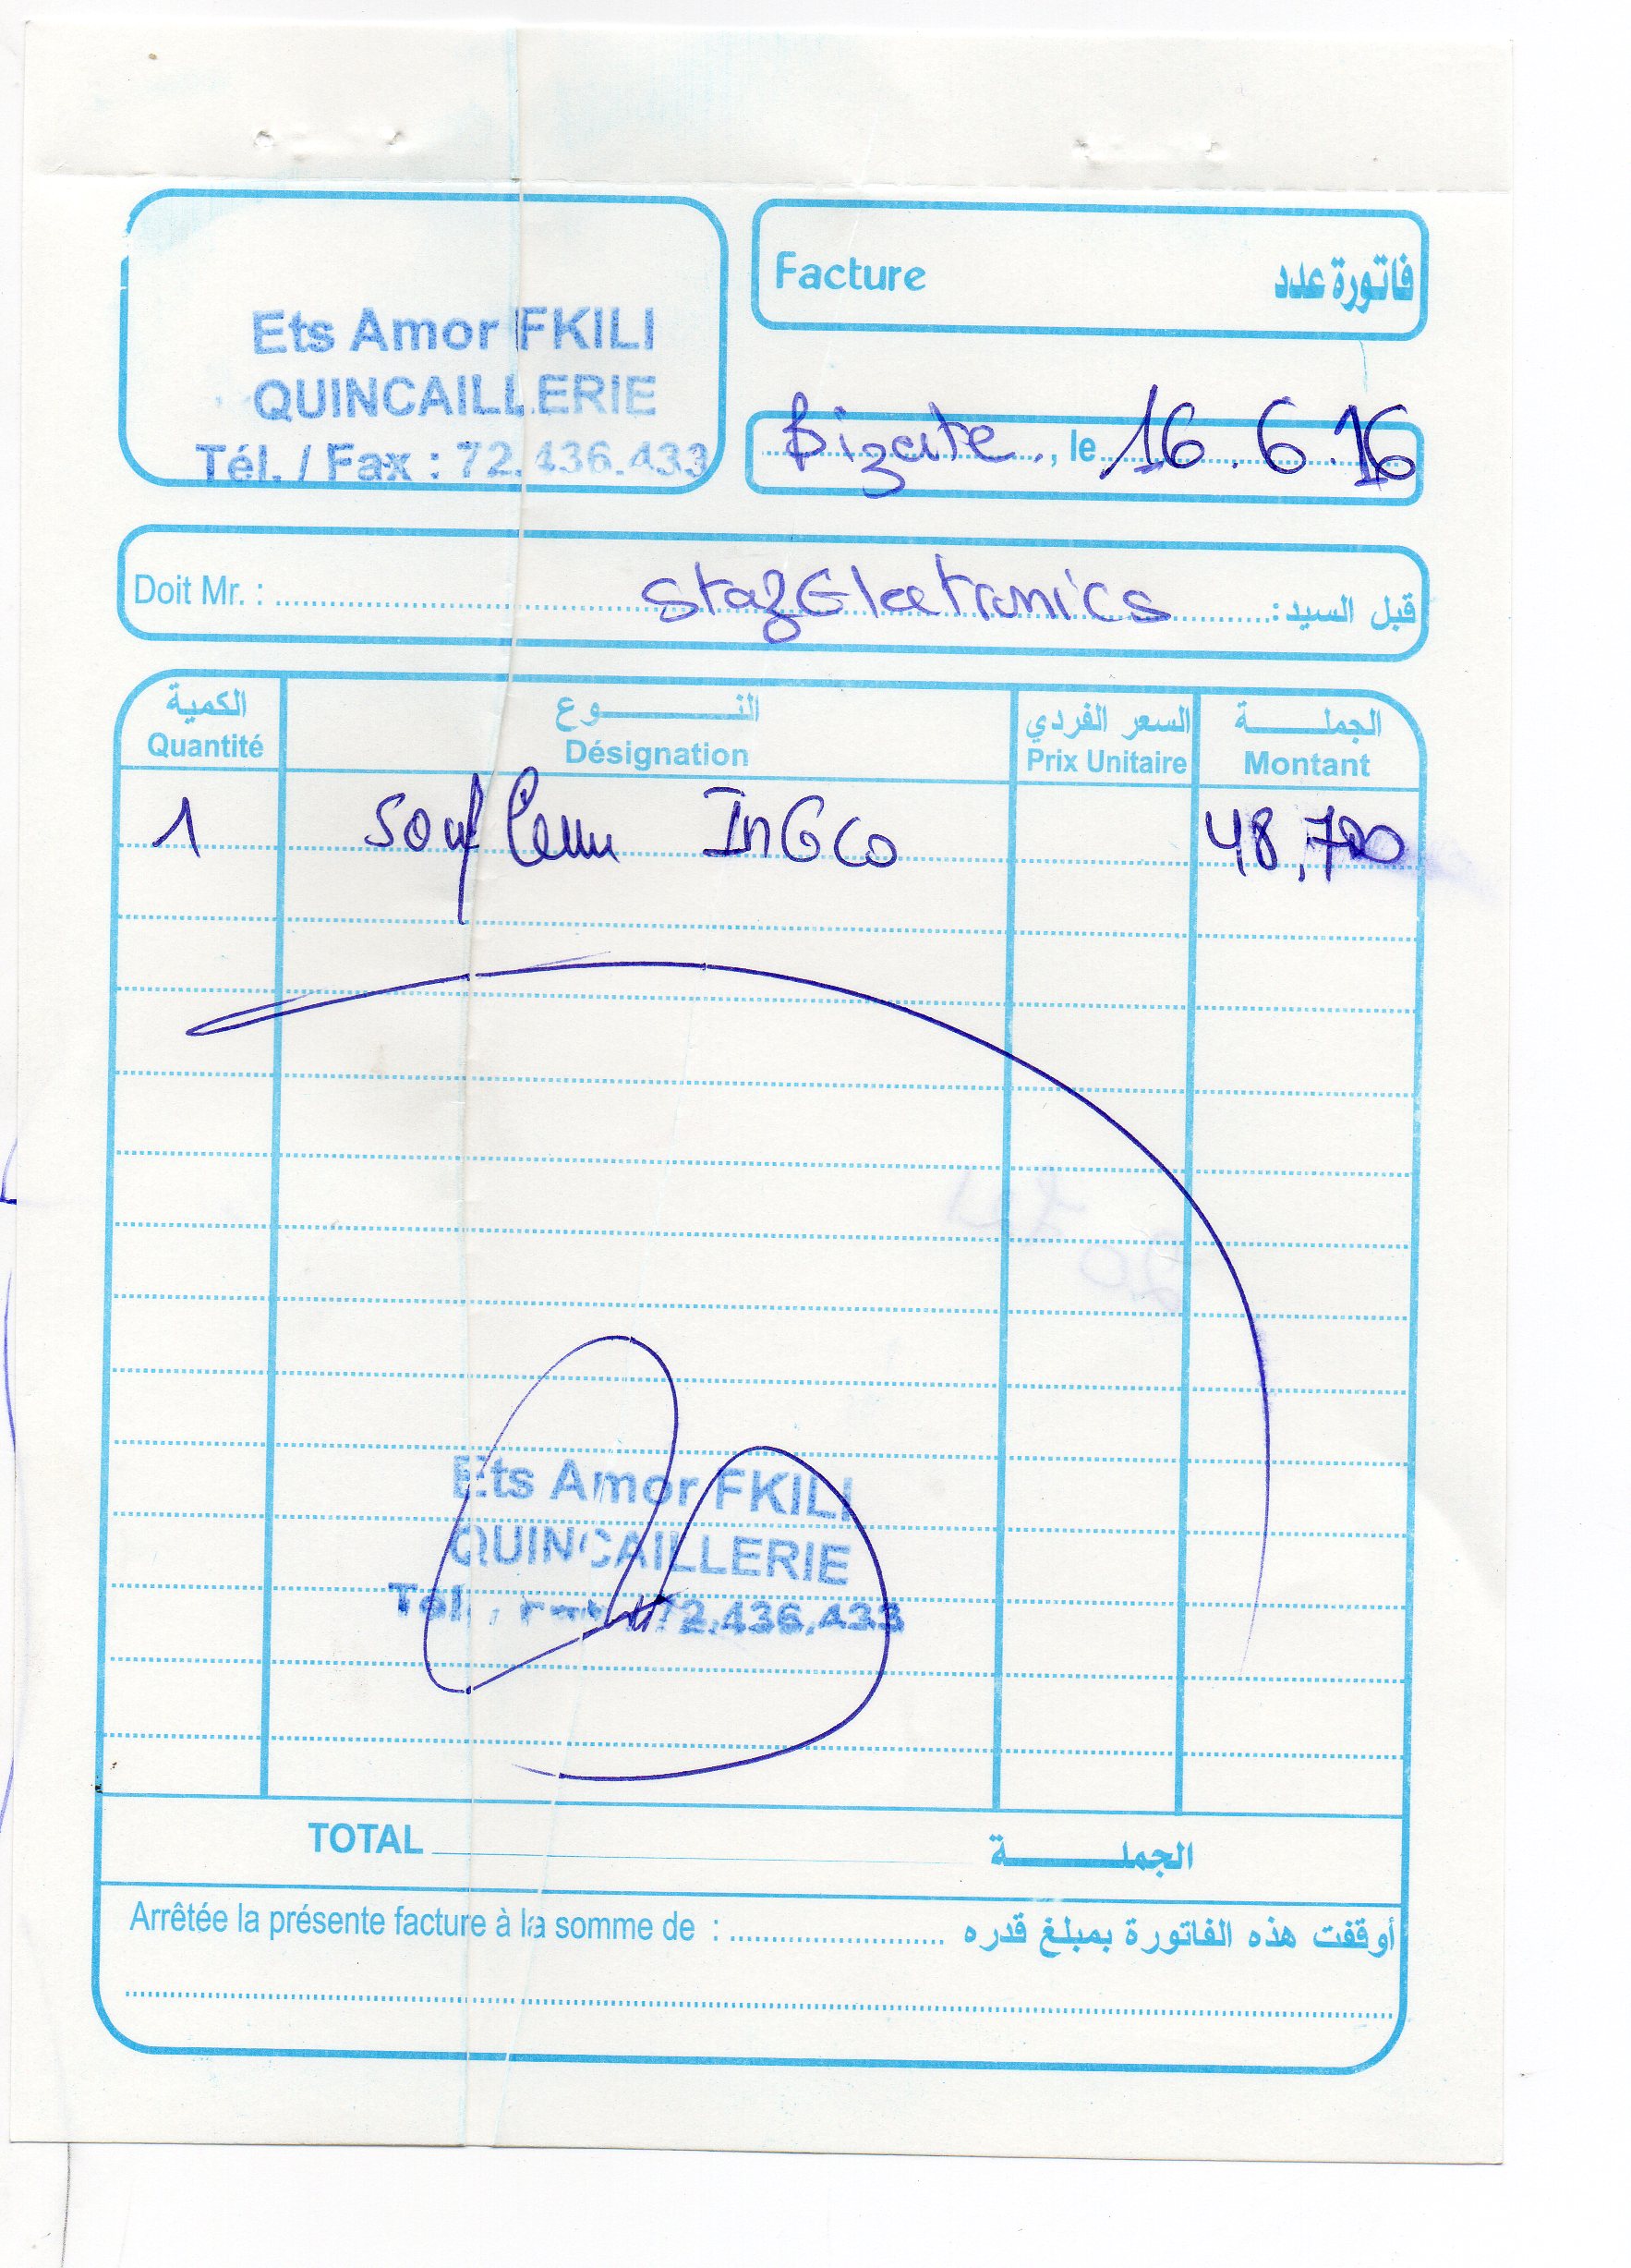 Ets Amor FKILI
QUINCAILLERIE
Tél. / Fax : 72.436.433
Facture فاتورة عدد
Bizerte, le 16.6.16
Doit Mr. : StazElectronics قبل السيد :
الكمية النوع السعر الفردي الجملة
Quantité Désignation Prix Unitaire Montant
1 Souffleur InGCo 48,700
Ets Amor FKILI
QUINCAILLERIE
Tél. 72.436.433
TOTAL الجملة
Arrêtée la présente facture à la somme de : أوقفت هذه الفاتورة بمبلغ قدره